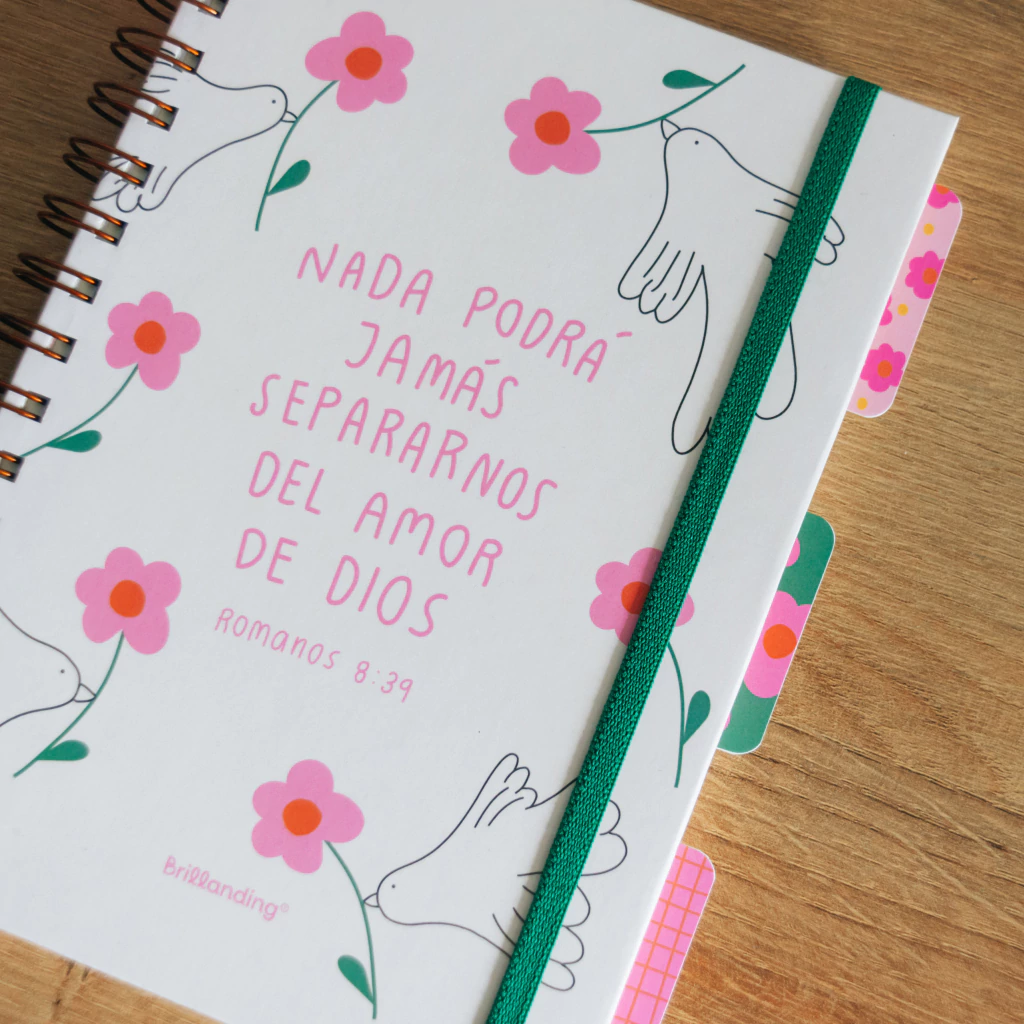 NADA PODRÁ
JAMÁS
SEPARARNOS
DEL AMOR
DE DIOS
ROMANOS 8:39
Brillanding®